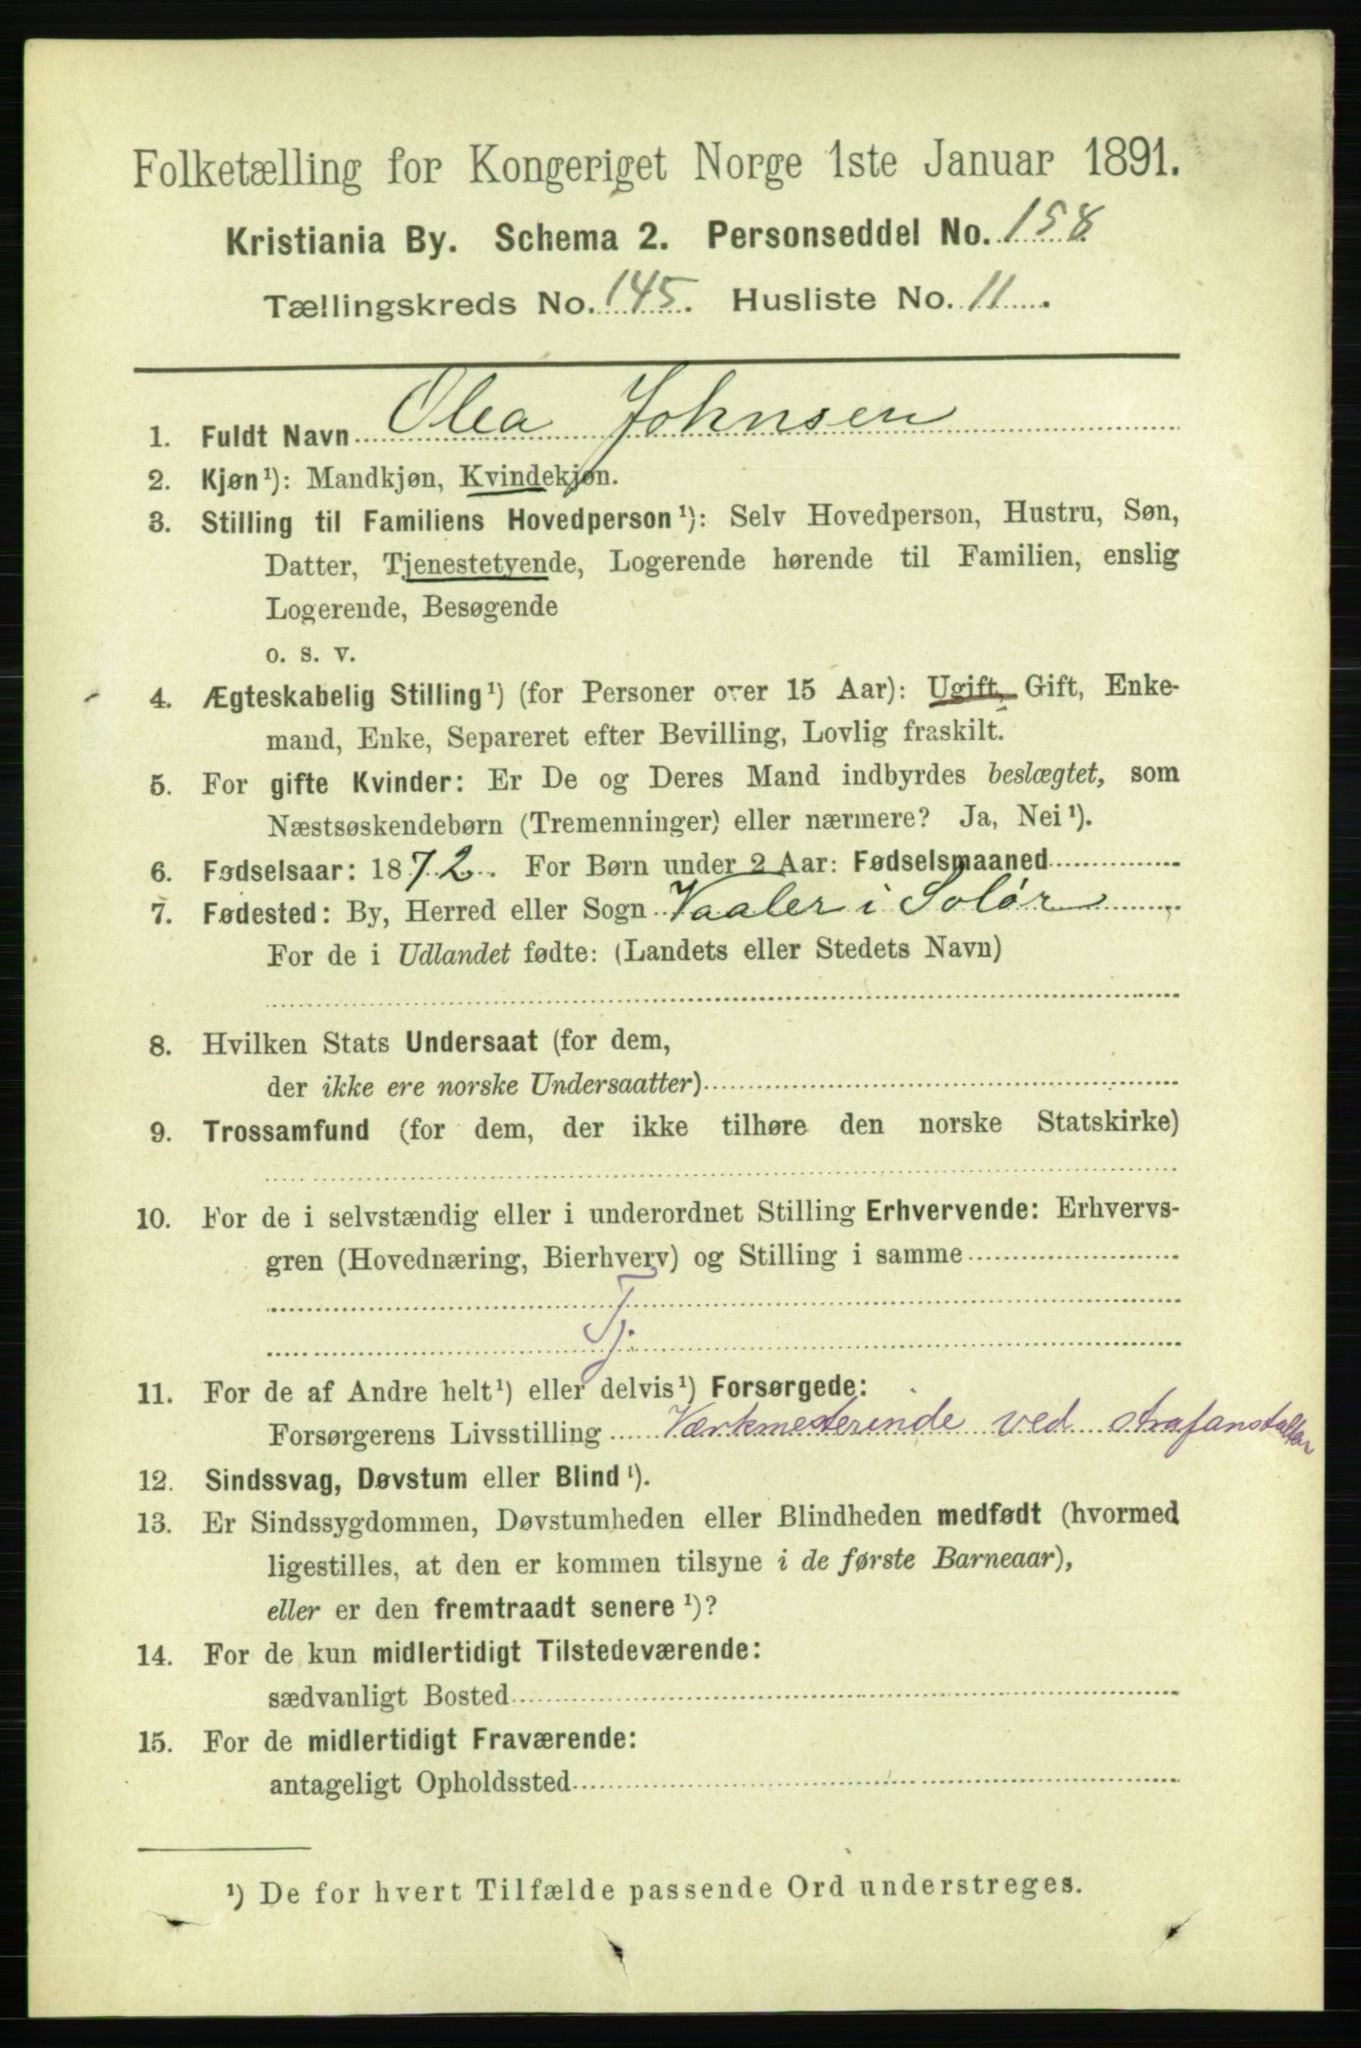 Folketælling for Kongeriget Norge 1ste Januar 1891.
Kristiania By. Schema 2. Personseddel No. 158
Tællingskreds No. 145. Husliste No. 11.
1. Fuldt Navn Olea Johnsen
2. Kjøn¹): Mandkjøn, Kvindekjøn.
3. Stilling til Familiens Hovedperson¹): Selv Hovedperson, Hustru, Søn,
Datter, Tjenestetyende, Logerende hørende til Familien, enslig
Logerende, Besøgende
o. s. v.
4. Ægteskabelig Stilling¹) (for Personer over 15 Aar): Ugift, Gift, Enke-
mand, Enke, Separeret efter Bevilling, Lovlig fraskilt.
5. For gifte Kvinder: Er De og Deres Mand indbyrdes beslægtet, som
Næstsøskendebørn (Tremenninger) eller nærmere? Ja, Nei¹).
6. Fødselsaar: 1872. For Børn under 2 Aar: Fødselsmaaned
7. Fødested: By, Herred eller Sogn Vaaler i Solør
For de i Udlandet fødte: (Landets eller Stedets Navn)
8. Hvilken Stats Undersaat (for dem,
der ikke ere norske Undersaatter)
9. Trossamfund (for dem, der ikke tilhøre den norske Statskirke)
10. For de i selvstændig eller i underordnet Stilling Erhvervende: Erhvervs-
gren (Hovednæring, Bierhverv) og Stilling i samme
Tj.
11. For de af Andre helt¹) eller delvis¹) Forsørgede:
Forsørgerens Livsstilling Værkmesterinde ved strafanstalten
12. Sindssvag, Døvstum eller Blind¹).
13. Er Sindssygdommen, Døvstumheden eller Blindheden medfødt (hvormed
ligestilles, at den er kommen tilsyne i de første Barneaar),
eller er den fremtraadt senere¹)?
14. For de kun midlertidigt Tilstedeværende:
sædvanligt Bosted
15. For de midlertidigt Fraværende:
antageligt Opholdssted
¹) De for hvert Tilfælde passende Ord understreges.